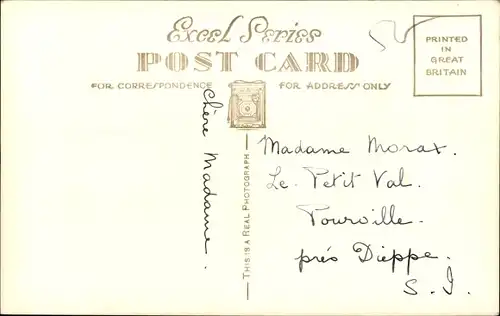 Excel Series
POST CARD
FOR CORRESPONDENCE
FOR ADDRESS ONLY
PRINTED
IN
GREAT
BRITAIN
chère Madame.
THIS IS A REAL PHOTOGRAPH
Madame Morax.
Le Petit Val.
Pourville.
près Dieppe.
S. I.